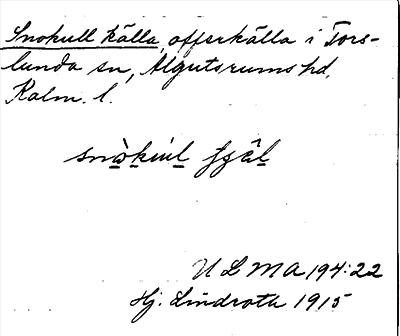 Snokull källa, offerkälla i Tors-
lunda sn, Algutsrums hd,
Kalm. l.
snòkul
ULMA 194:22
Hj. Lindroth 1915